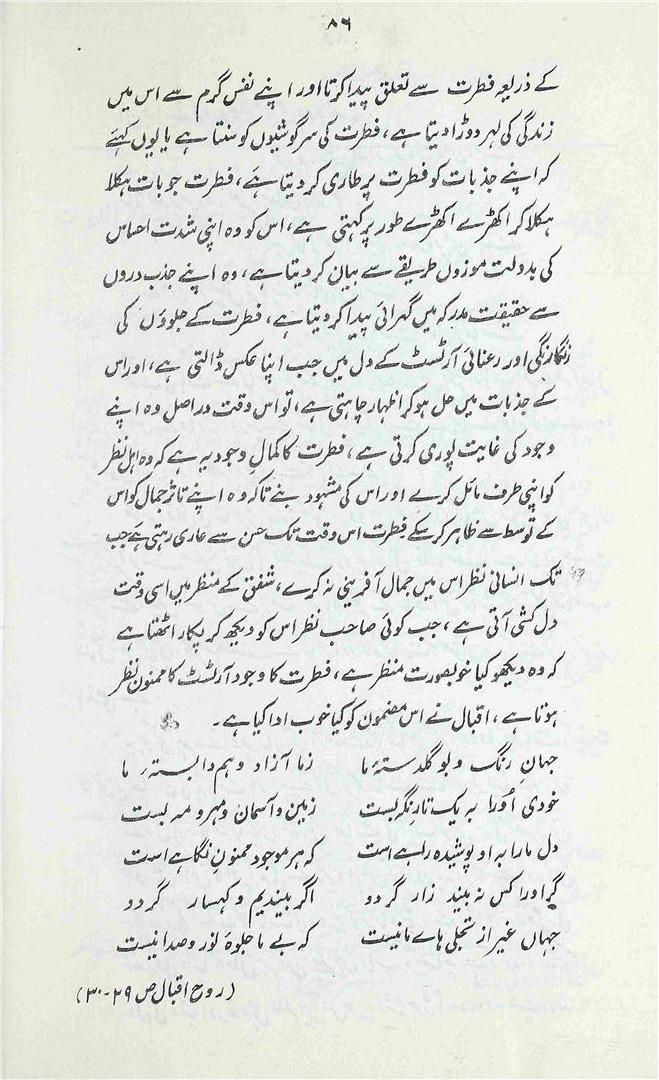 ۸۶
کے ذریعہ فطرت سے تعلق پیدا کرتا اور اپنے نفس گرم سے اس میں
زندگی کی لہر دوڑا دیتا ہے، فطرت کی سرگوشیوں کو سنتا ہے یا یوں کہئے
کہ اپنے جذبات کو فطرت پر طاری کر دیتا ہے، فطرت جو بات ہکلا
ہکلا کر اکھڑے اکھڑے طور پر کہتی ہے، اس کو وہ اپنی شدت احساس
کی بدولت موزوں طریقے سے بیان کر دیتا ہے، وہ اپنے جذب دروں
سے حقیقت مدرکہ میں گہرائی پیدا کر دیتا ہے، فطرت کے جلوؤں کی
رنگارنگی اور رعنائی آرٹسٹ کے دل میں جب اپنا عکس ڈالتی ہے، اور اس
کے جذبات میں حل ہو کر اظہار چاہتی ہے، تو اس وقت دراصل وہ اپنے
وجود کی غایت پوری کرتی ہے، فطرت کا کمالِ وجود یہ ہے کہ وہ اہل نظر
کو اپنی طرف مائل کرے اور اس کی مشہود بنے تاکہ وہ اپنے تاثر جمال کو اس
کے توسط سے ظاہر کر سکے فطرت اس وقت تک حسن سے عاری رہتی ہے جب
تک انسانی نظر اس میں جمال آفرینی نہ کرے، شفق کے منظر میں اسی وقت
دل کشی آتی ہے، جب کوئی صاحب نظر اس کو دیکھ کر پکار اٹھتا ہے
کہ وہ دیکھو کیا خوبصورت منظر ہے، فطرت کا وجود آرٹسٹ کا ممنون نظر
ہوتا ہے، اقبال نے اس مضمون کو کیا خوب ادا کیا ہے۔
جہانِ رنگ و بو گلدستۂ ما زما آزاد و ہم وابستۂ ما
خودی اُورا بہ یک تارِنگہ بست زمین و آسمان و مہر و مہ بست
دل مارا بہ او پوشیدہ راہے است کہ ہر موجود ممنونِ نگاہے است
گر اورا کس نہ بیند زار گردد اگر بیندیم و کہسار گردد
جہاں غیر از تجلی ہاے ما نیست کہ بے ما جلوۂ نور و صدا نیست
(روح اقبال ص ۲۹-۳۰)